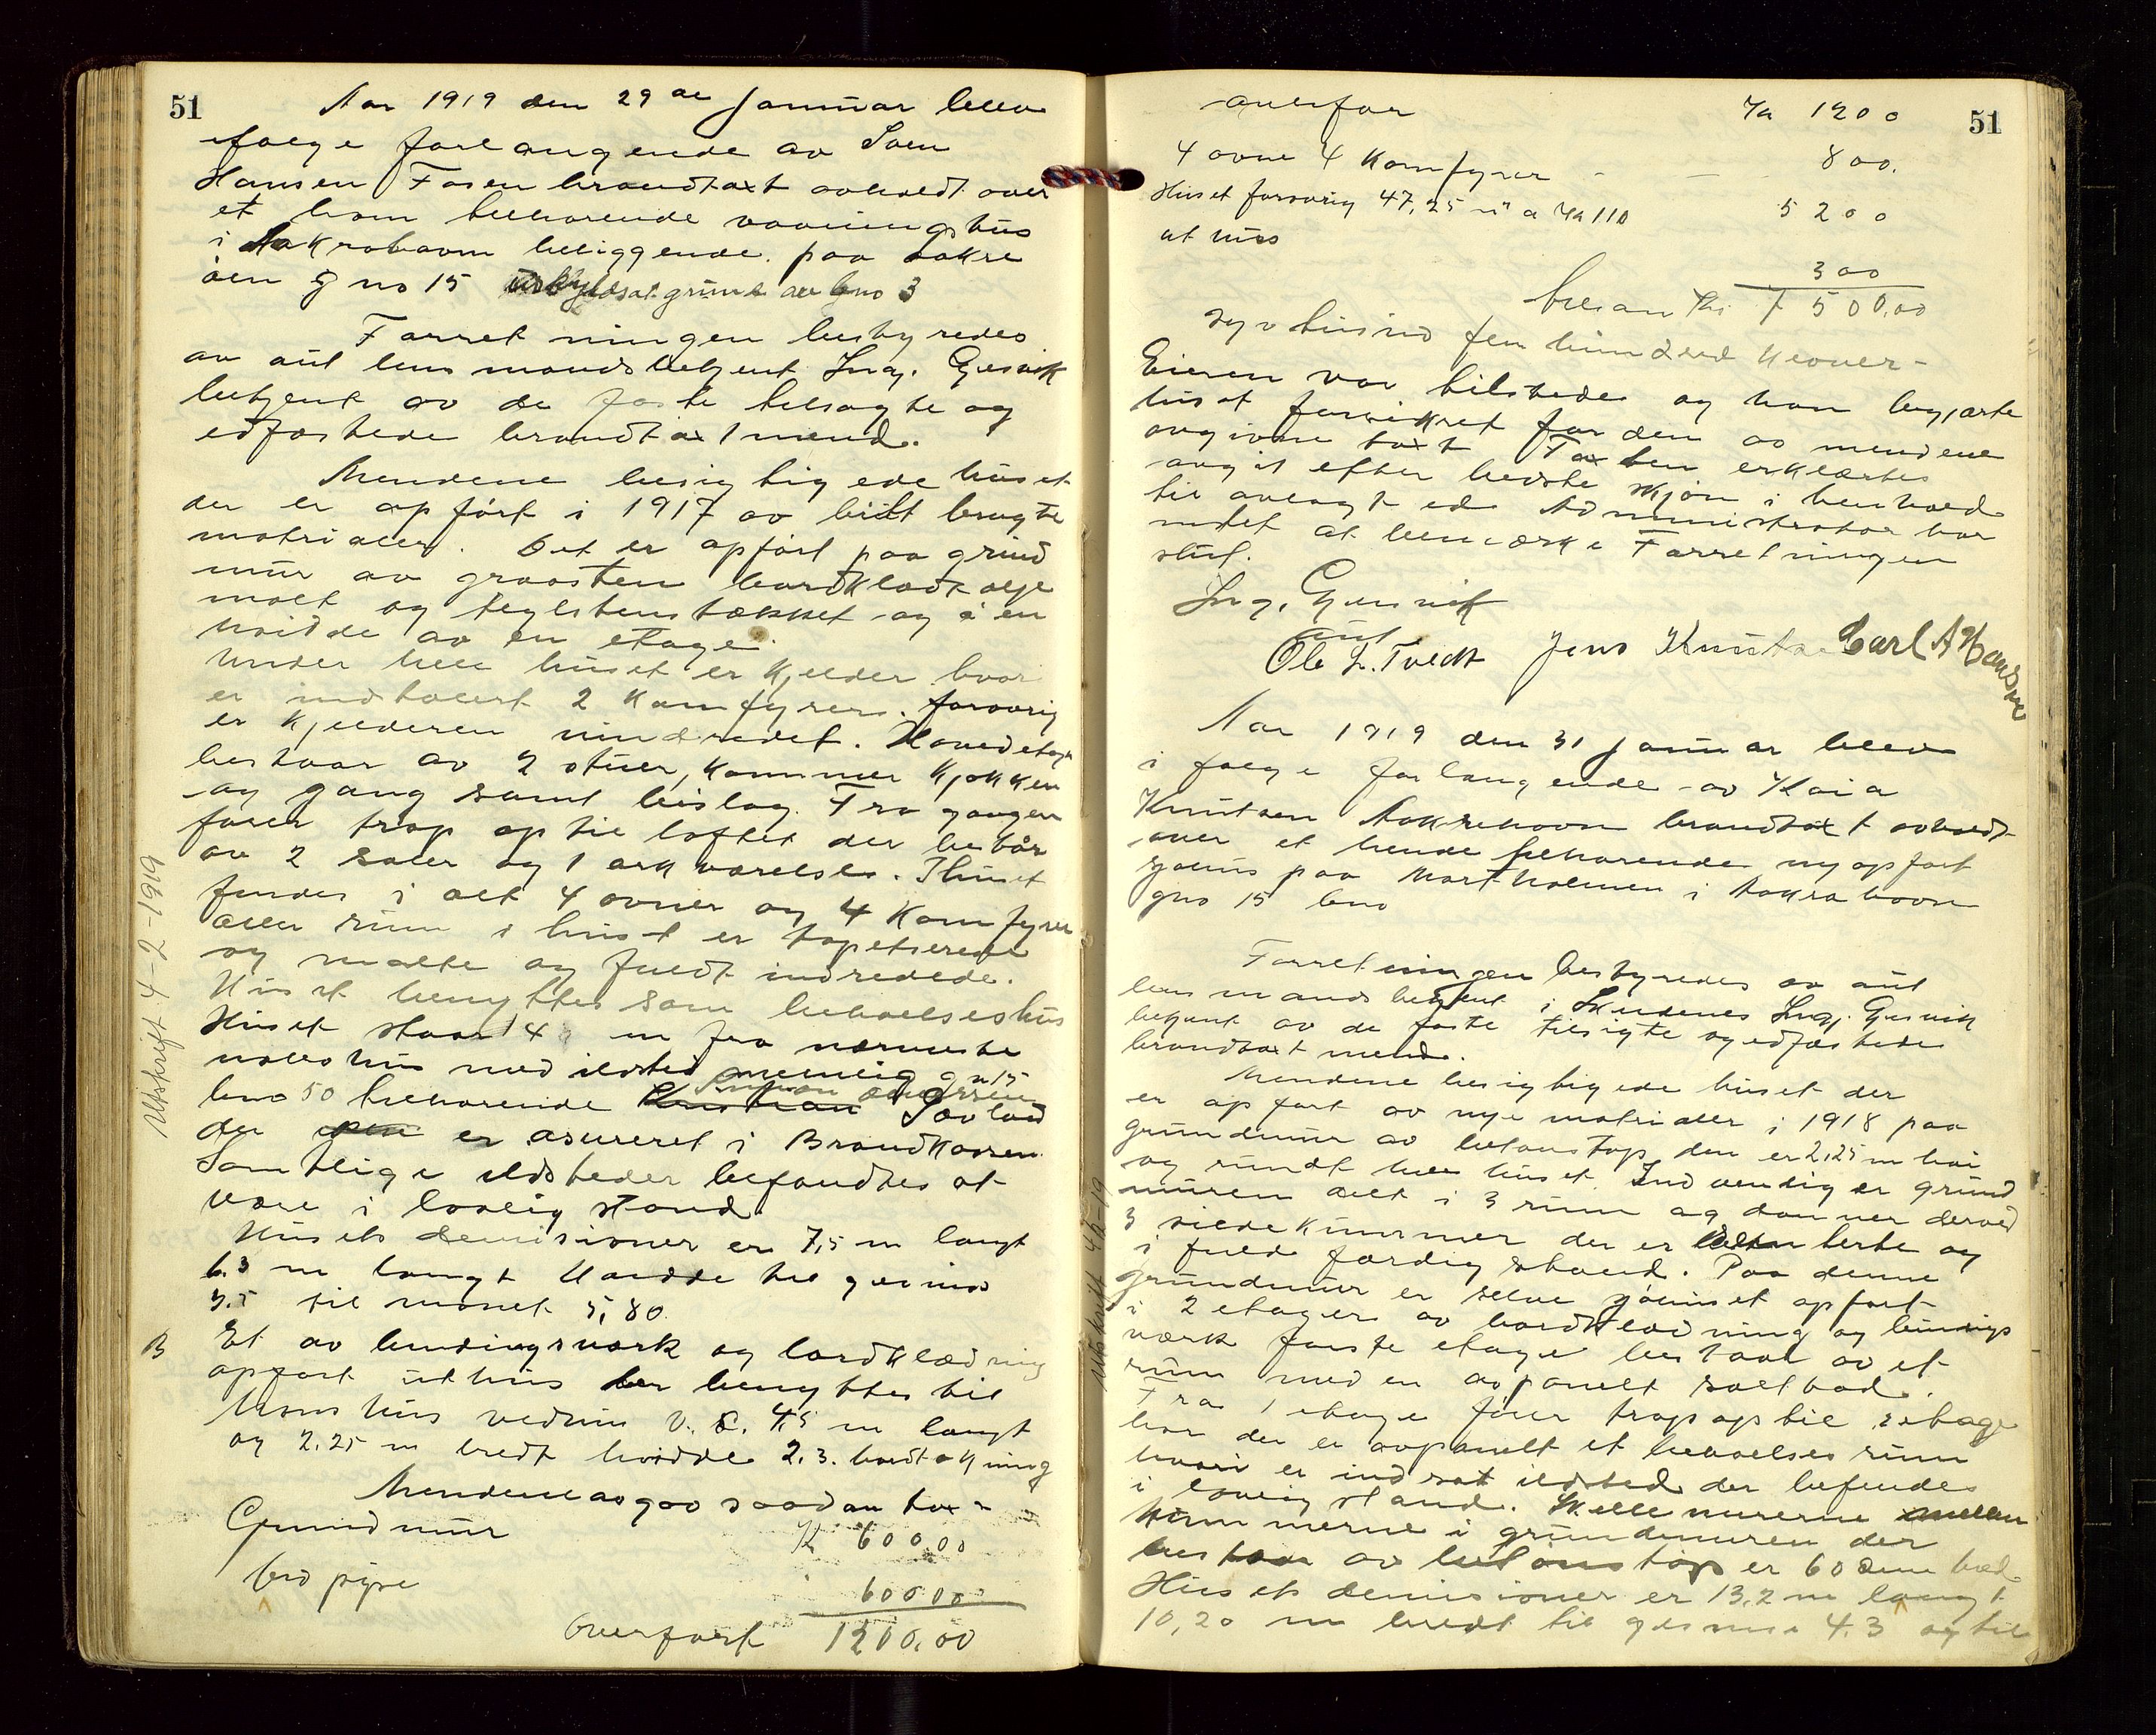 51
Aar 1919 den 29de Januar blev
ifølge forlangende av Sven
Hansen Fosen brandtaxt avholdt over
et ham tilhørende vaaningshus
i Aakrehavn beliggende paa Aakre
øen g no 15 uskyldsat grund av bno 3
Forretningen bestyredes
av aut lensmandsbetjent Ingv. Gjesvik
betjent av de faste tilsagte og
edfæstede brandtaxtmænd.
Mændene besigtigede huset
der er opført i 1917 av bilt brugte
matrialer. Det er opført paa grund
mur av graasten bordklædt olje
malt og teglstenstækket og i en
høidde av en etage.
Under hele huset er kjelder hvor
er indhovert 2 Komfyrer. forøvrig
er Kjelderen uindredet. Hovedetage
bestaar av 2 stuer, kammer Kjøkken
og gang samt bislag. Fra gangen
fører trap op til loftet der bestaar
av 2 saler og 1 arkværelse. I huset
findes i alt 4 ovner og 4 Komfyrer
Aller rum i huset er tapetserede
og malte og fuldt indredede.
Huset benyttes som beboelseshus
Huset staar 14 m fra nærmeste
nabohus med ildsted nemlig gn 15
bno 50 tilhørende Kristian Sovland
der er asureret i Brandkassen.
Samtlige ildsteder befandtes at
være i lovlig stand.
Husets demisioner er 7,5 m langt
6.3 m langt Høidde til gesims
3.5 til mønet 5,80
B Et av bindingsverk og bordklædning
opført uthus der benyttes til
hønshus vedrum V. C. 4,5 m langt
og 2,25 m bredt høidde 2.3. bordtækning
Mændene avgav saadan taxt
Grundmur K 600,00
Bro pipe 600,00
Overført 1200,00
Utskrift 4-2-1919
51
overfør Kr 1200
4 ovne 4 Komfyrer 800.
Huset forøvrig 47,25 m² a Kr 110 5200
ut hus 300
tilsam Kr 7500,00
syvtusind fem hundred Kroner-
Eieren var tilstede og han begjærte
huset forsikret for den av mændene
avgivne taxt Taxten erklærtes
avgit efter bedste skjøn i henhold
til avlagt ed. Administrator har
intet at bemærke Forretningen
slut.
Ingv. Gjesvik
aut
Ole L. Tvedt Jens Knutsen Carl A Hansen
Aar 1919 den 31 Januar blev
i følge forlangende av Kaia
Knutsen Aakrehavn brandtaxt avholdt
over et hende tilhørende nyopført
sjøhus paa Mortholmen i Aakrahavn
gno 15 bno
Forretningen bestyredes av aut
lensmandsbetjent i Skudenes Ingv. Gjesvik
betjent av de faste tilsigte og edfæstede
brandtaxtmænd.
Mændene besigtigede huset der
er opført av nye matrialer i 1918 paa
grundmur av betonstøp den er 2,25 m høi
og rundt hele huset. Indvendig er grund
muren delt i 3 rum og danner derved
3 sildekummer der er tette og
i fuld færdig stand. Paa denne
grundmur er selve sjøhuset opført
i 2 etager av bordklædning og bindings
værk første etage bestaar av et
rum med en avpanelt saltbod.
Fra 1 etage fører trap op til 2 etage
hvor der er avpanelt et beboelses rum
hvori er indsat ildsted der befindes
i lovlig stand. Skillemurerne mellem
kummerne i grundmuren der
bestaar av betonstøp er 60 cm bred.
Husets demisioner er 13,2 m langt
10,20 m bredt til gesims 4.3 og til
Utskrift 4/2-19